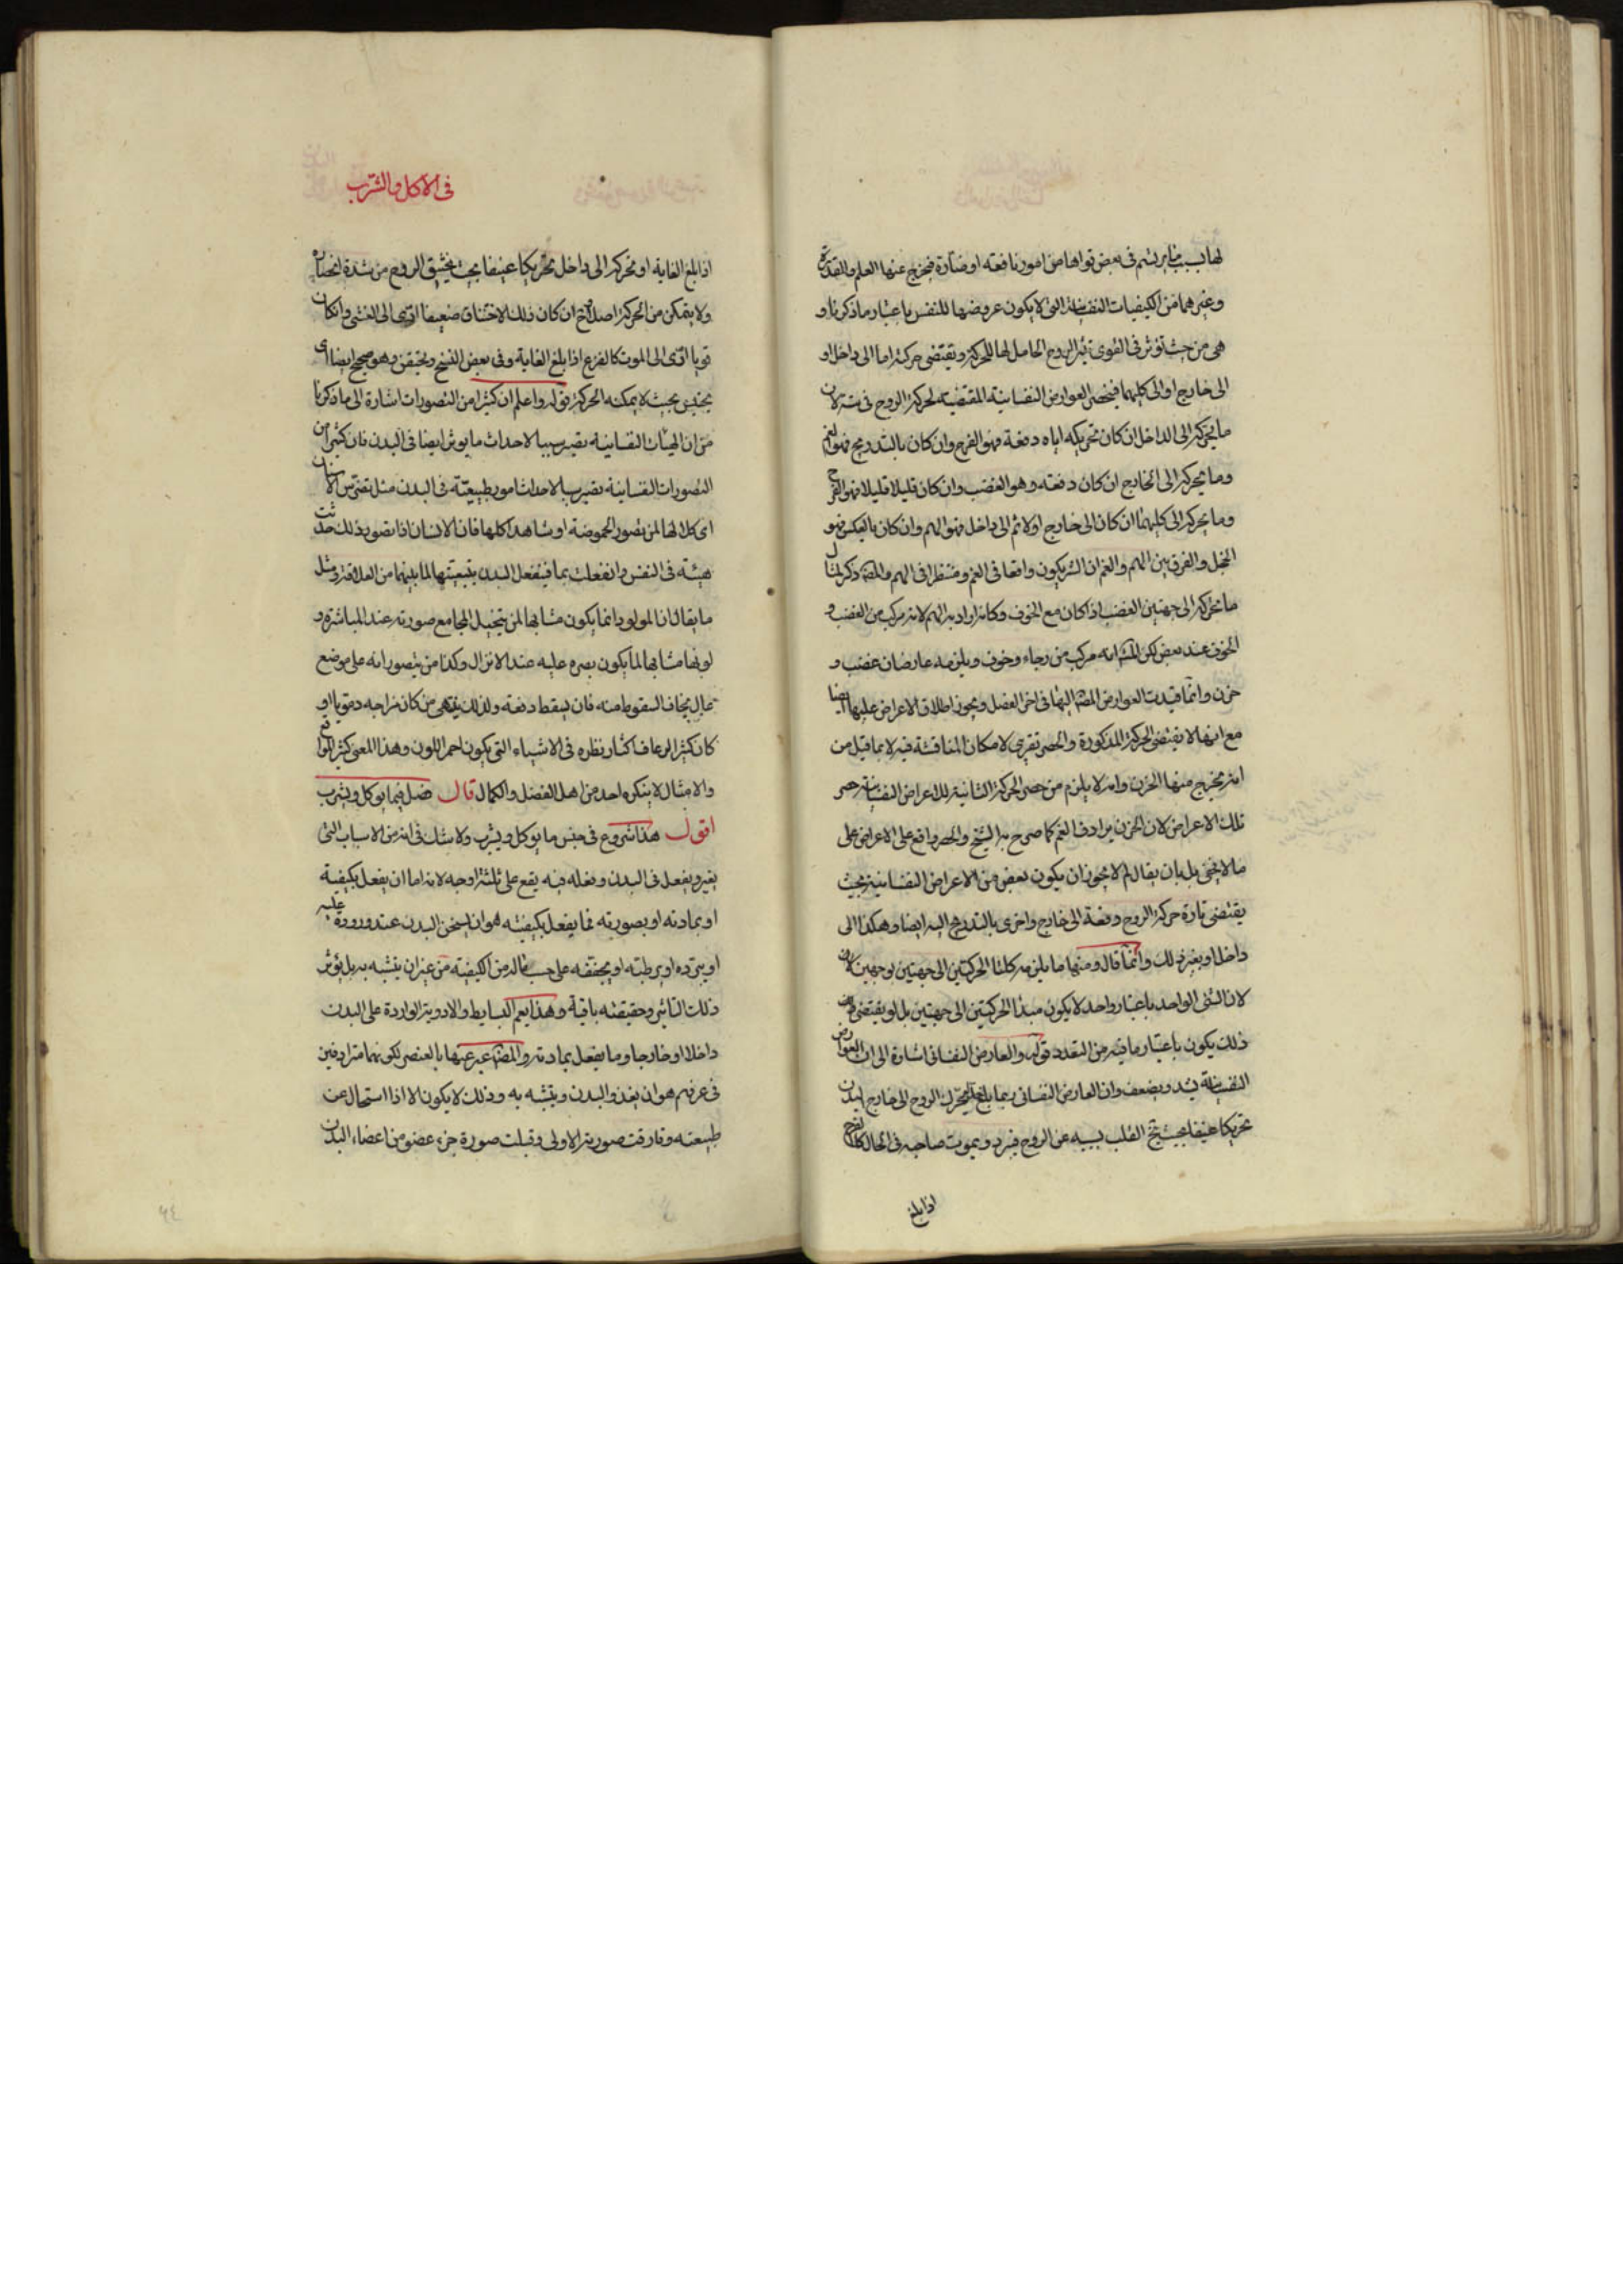 لها بسبب ما يرتسم فى بعض قواها من امور نافعة او ضارة فيخرج عنها العلم والقدرة
وغيرهما من الكيفيات النفسانية التى لا يكون عروضها للنفس باعتبار ما ذكرنا و
هى من حيث تؤثر فى القوى تثير الروح الحامل لها للحركة وتقتضى حركته اما الى داخل او
الى خارج او الى كليهما فينحصر العوارض النفسانية المقتضية لحركة الروح فى ستة لان
ما يحركه الى الداخل ان كان تحريكه اياه دفعة فهو الفزع وان كان بالتدريج فهو الغم
وما يحركه الى الخارج ان كان دفعة وهو الغضب وان كان قليلا قليلا فهو الفرح
وما يحركه الى كليهما ان كان الى خارج اولا ثم الى داخل فهو الهم وان كان بالعكس فهو
الخجل والفرق بين الهم والغم ان الشر يكون واقعا فى الغم ومنتظرا فى الهم والمصـ ذكر لمثال
ما تحركه الى جهتين الغضب اذا كان مع الخوف وكانه اراد به الهم لانه مركب من الغضب و
الخوف عند بعض لكن المشـ انه مركب من رجاء وخوف ويلزمه عارضان غضب و
حزن وانما قيدت العوارض المضـ اليها فى اخر الفصل ويجوز اطلاق الاعراض عليها ايضا
مع انها لا يقتضى الحركة المذكورة والحصر تقريبى لامكان المناقشة فيه لا بما قيل من
انه يخرج منها الحزن وانه لا يلزم من حصر الحركة الثانية للاعراض النفسانية حصر
تلك الاعراض لان الحزن مرادف الغم كما صرح به الشيخ والحصر واقع على الاعراض على
ما لا يخفى بل بان يقال لم لا يجوز ان يكون بعض من الاعراض النفسانية بحيث
يقتضى تارة حركة الروح دفعة الى خارج واخرى بالتدريج اليه ايضا وهكذا الى
داخل او بغير ذلك وانما قال ومنها ما يلزمه كلتا الحركتين الى جهتين بوجهين لان
لان الشئ الواحد باعتبار واحد لا يكون مبدأ الحركتين الى جهتين بل لو يقتضى
ذلك يكون باعتبار ما فيه من التعدد قوله والعارض النفسانى اشارة الى ان العوارض
النفسانية يشد ويضعف وان العارض النفسانى ربما بلغ تحرك الروح الى خارج البدن
تحريكا عنيفا بحيث يتخ القلب بسببه عن الروح فيبرد ويموت صاحبه فى الحال كالفرح
اذا بلغ
فى الاكل والشرب
اذا بلغ الغاية او تحركه الى داخل تحريكا عنيفا بحيث يختنق الروح من شدة انحصاره
ولا يتمكن من الحركة اصلا ثم ان كان ذلك الاختناق ضعيفا ادى الى الغشى وان كان
قويا ادى الى الموت كالفزع اذا بلغ الغاية وفى بعض النسخ ويحتقن وهو صحيح ايضا اى
يحتقن بحيث لا يمكنه الحركة قوله واعلم ان كثيرا من التصورات اشارة الى ما ذكرنا
من ان الهيأت النفسانية تصير سببا لاحداث ما يوثر ايضا فى البدن فان كثيرا من
التصورات النفسانية تصير سببا لاحداث امور طبيعية فى البدن مثل تضرس الاسنان
اى كلالها لمن تصور الحموضة او شاهد اكلها فان الانسان اذا تصور ذلك حدثت
هيئة فى النفس وانفعلت بها فينفعل البدن بتبعيتها لما بينهما من العلاقة ومثل
ما يقال ان المولود انما يكون مشابها لمن يتخيل المجامع صورته عند المباشرة و
لونها مشابها لما يكون بصره عليه عند الانزال وكذا من يتصور انه على موضع
عال يخاف السقوط منه فان يسقط دفعة ولذلك ينهى من كان مزاجه دمويا او
كان كثير الرعاف اكثار نظره فى الاشياء التى يكون احمر اللون وهذا المعنى كثير الوقوع
والامثال لا ينكره احد من اهل الفضل والكمال قال فصل فيما يوكل ويشرب
اقول هذا شروع فى جنس ما يوكل ويشرب ولا شك فى انه من الاسباب التى
يغير ويفعل فى البدن وفعله فيه يقع على ثلثة اوجه لانه اما ان يفعل بكيفية
او بمادته او بصورته فما يفعل بكيفيته هو ان يسخن البدن عند وروده عليه
او يبرده او يرطبه او يجففه على حسب ماله من الكيفية من غير ان يتشبه به بل يؤثر
ذلك التاثير وحقيقته باقية وهذا يعم البسايط والادوية الواردة على البدن
داخلا او خارجا وما يفعل بمادته والمصـ عبر عنها بالعنصر لكونهما مترادفين
فى عرفهم هو ان يغذو البدن ويتشبه به وذلك لا يكون الا اذا استحال عن
طبيعته وفارقت صورته الاولى وقبلت صورة جزء عضو من اعضاء البدن
٩٤